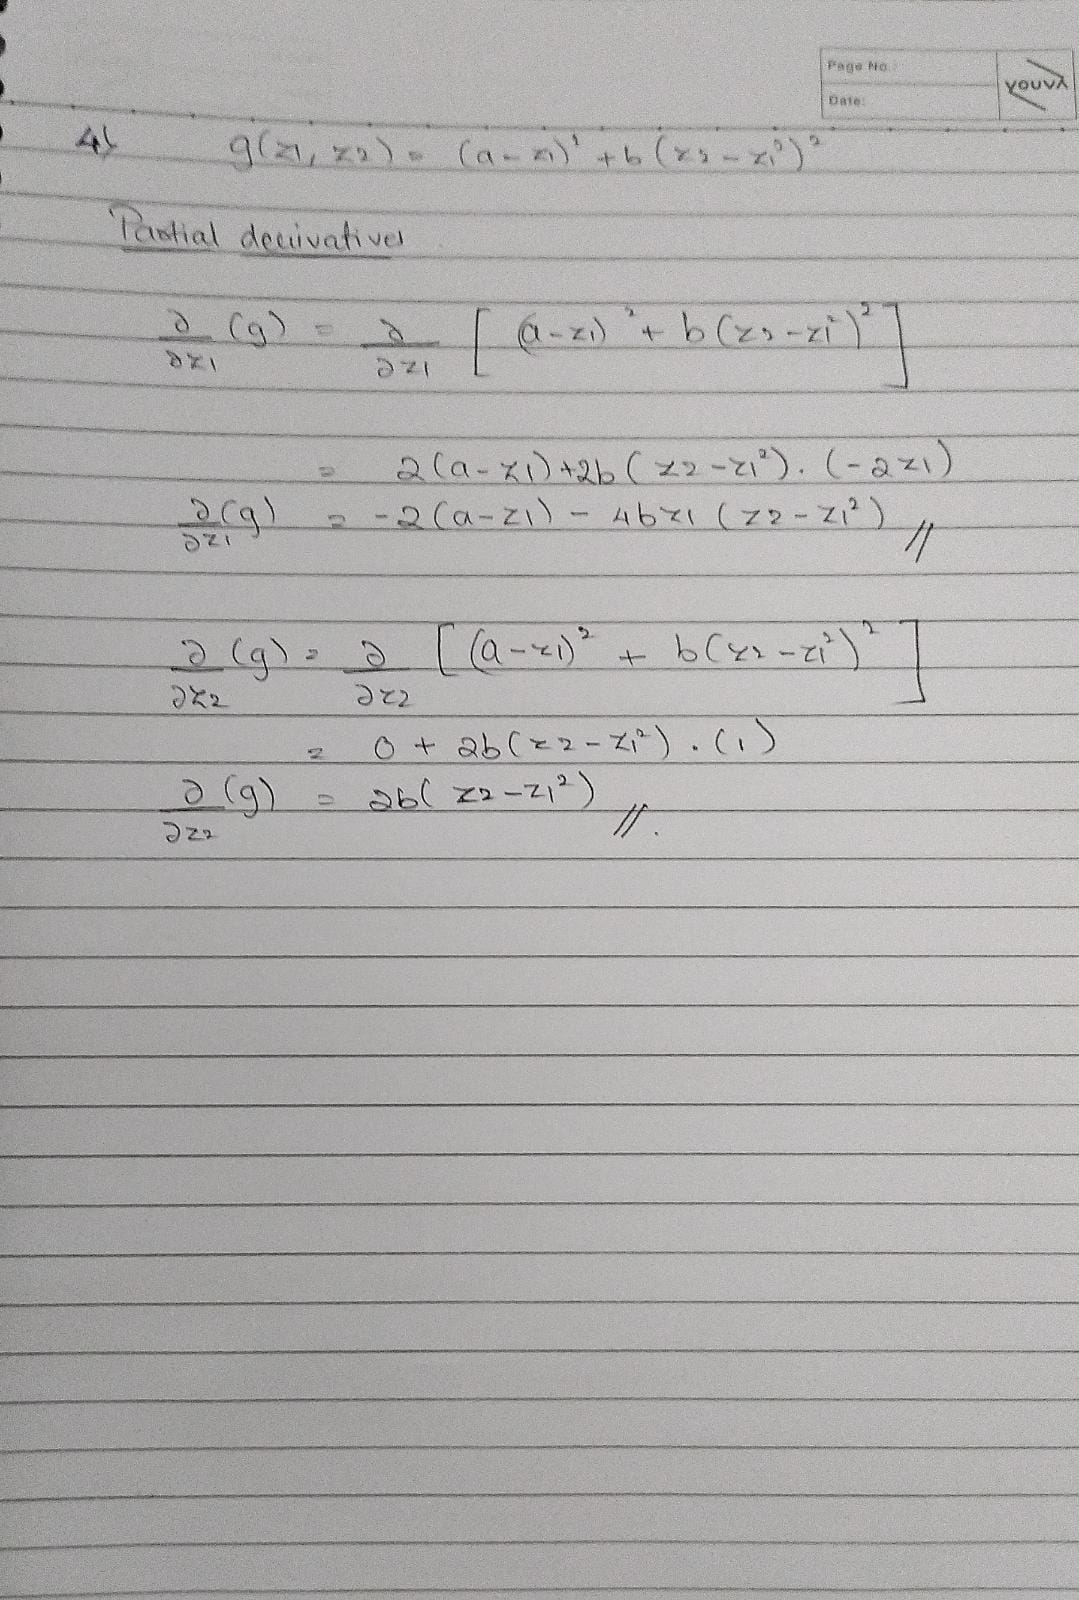 Page No.
Date:
YOUVA
4) g(z1, z2) = (a - z1)² + b (z2 - z1²)²
Partial derivatives
∂/∂z1 (g) = ∂/∂z1 [ (a - z1)² + b (z2 - z1²)² ]
= 2(a - z1) + 2b ( z2 - z1²). (-2z1)
∂(g)/∂z1 = -2(a - z1) - 4bz1 (z2 - z1²) //
∂/∂z2 (g) = ∂/∂z2 [ (a - z1)² + b(z2 - z1²)² ]
= 0 + 2b(z2 - z1²) . (1)
∂/∂z2 (g) = 2b( z2 - z1²) //.